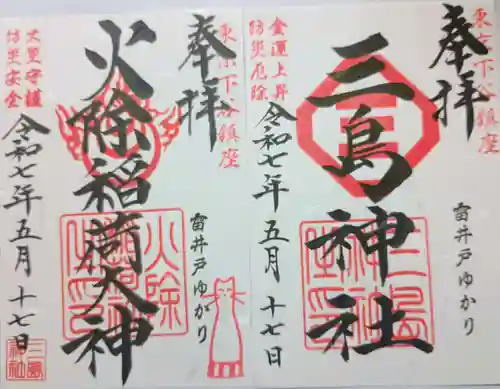 奉拝
東京下谷鎮座
三島神社
金運上昇
防災厄除
令和七年五月十七日
雷井戸ゆかり
三島
神社
之印
奉拝
東京下谷鎮座
火除稲荷大神
火災守護
防災安全
令和七年五月十七日
雷井戸ゆかり
火除
三島
神社